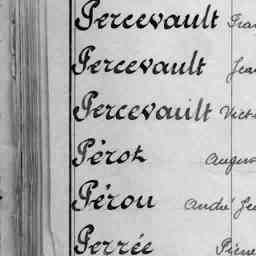 Percevault
Percevault Jean
Percevault Vict
Pérot
Pérou André Je
Perrée Pierre